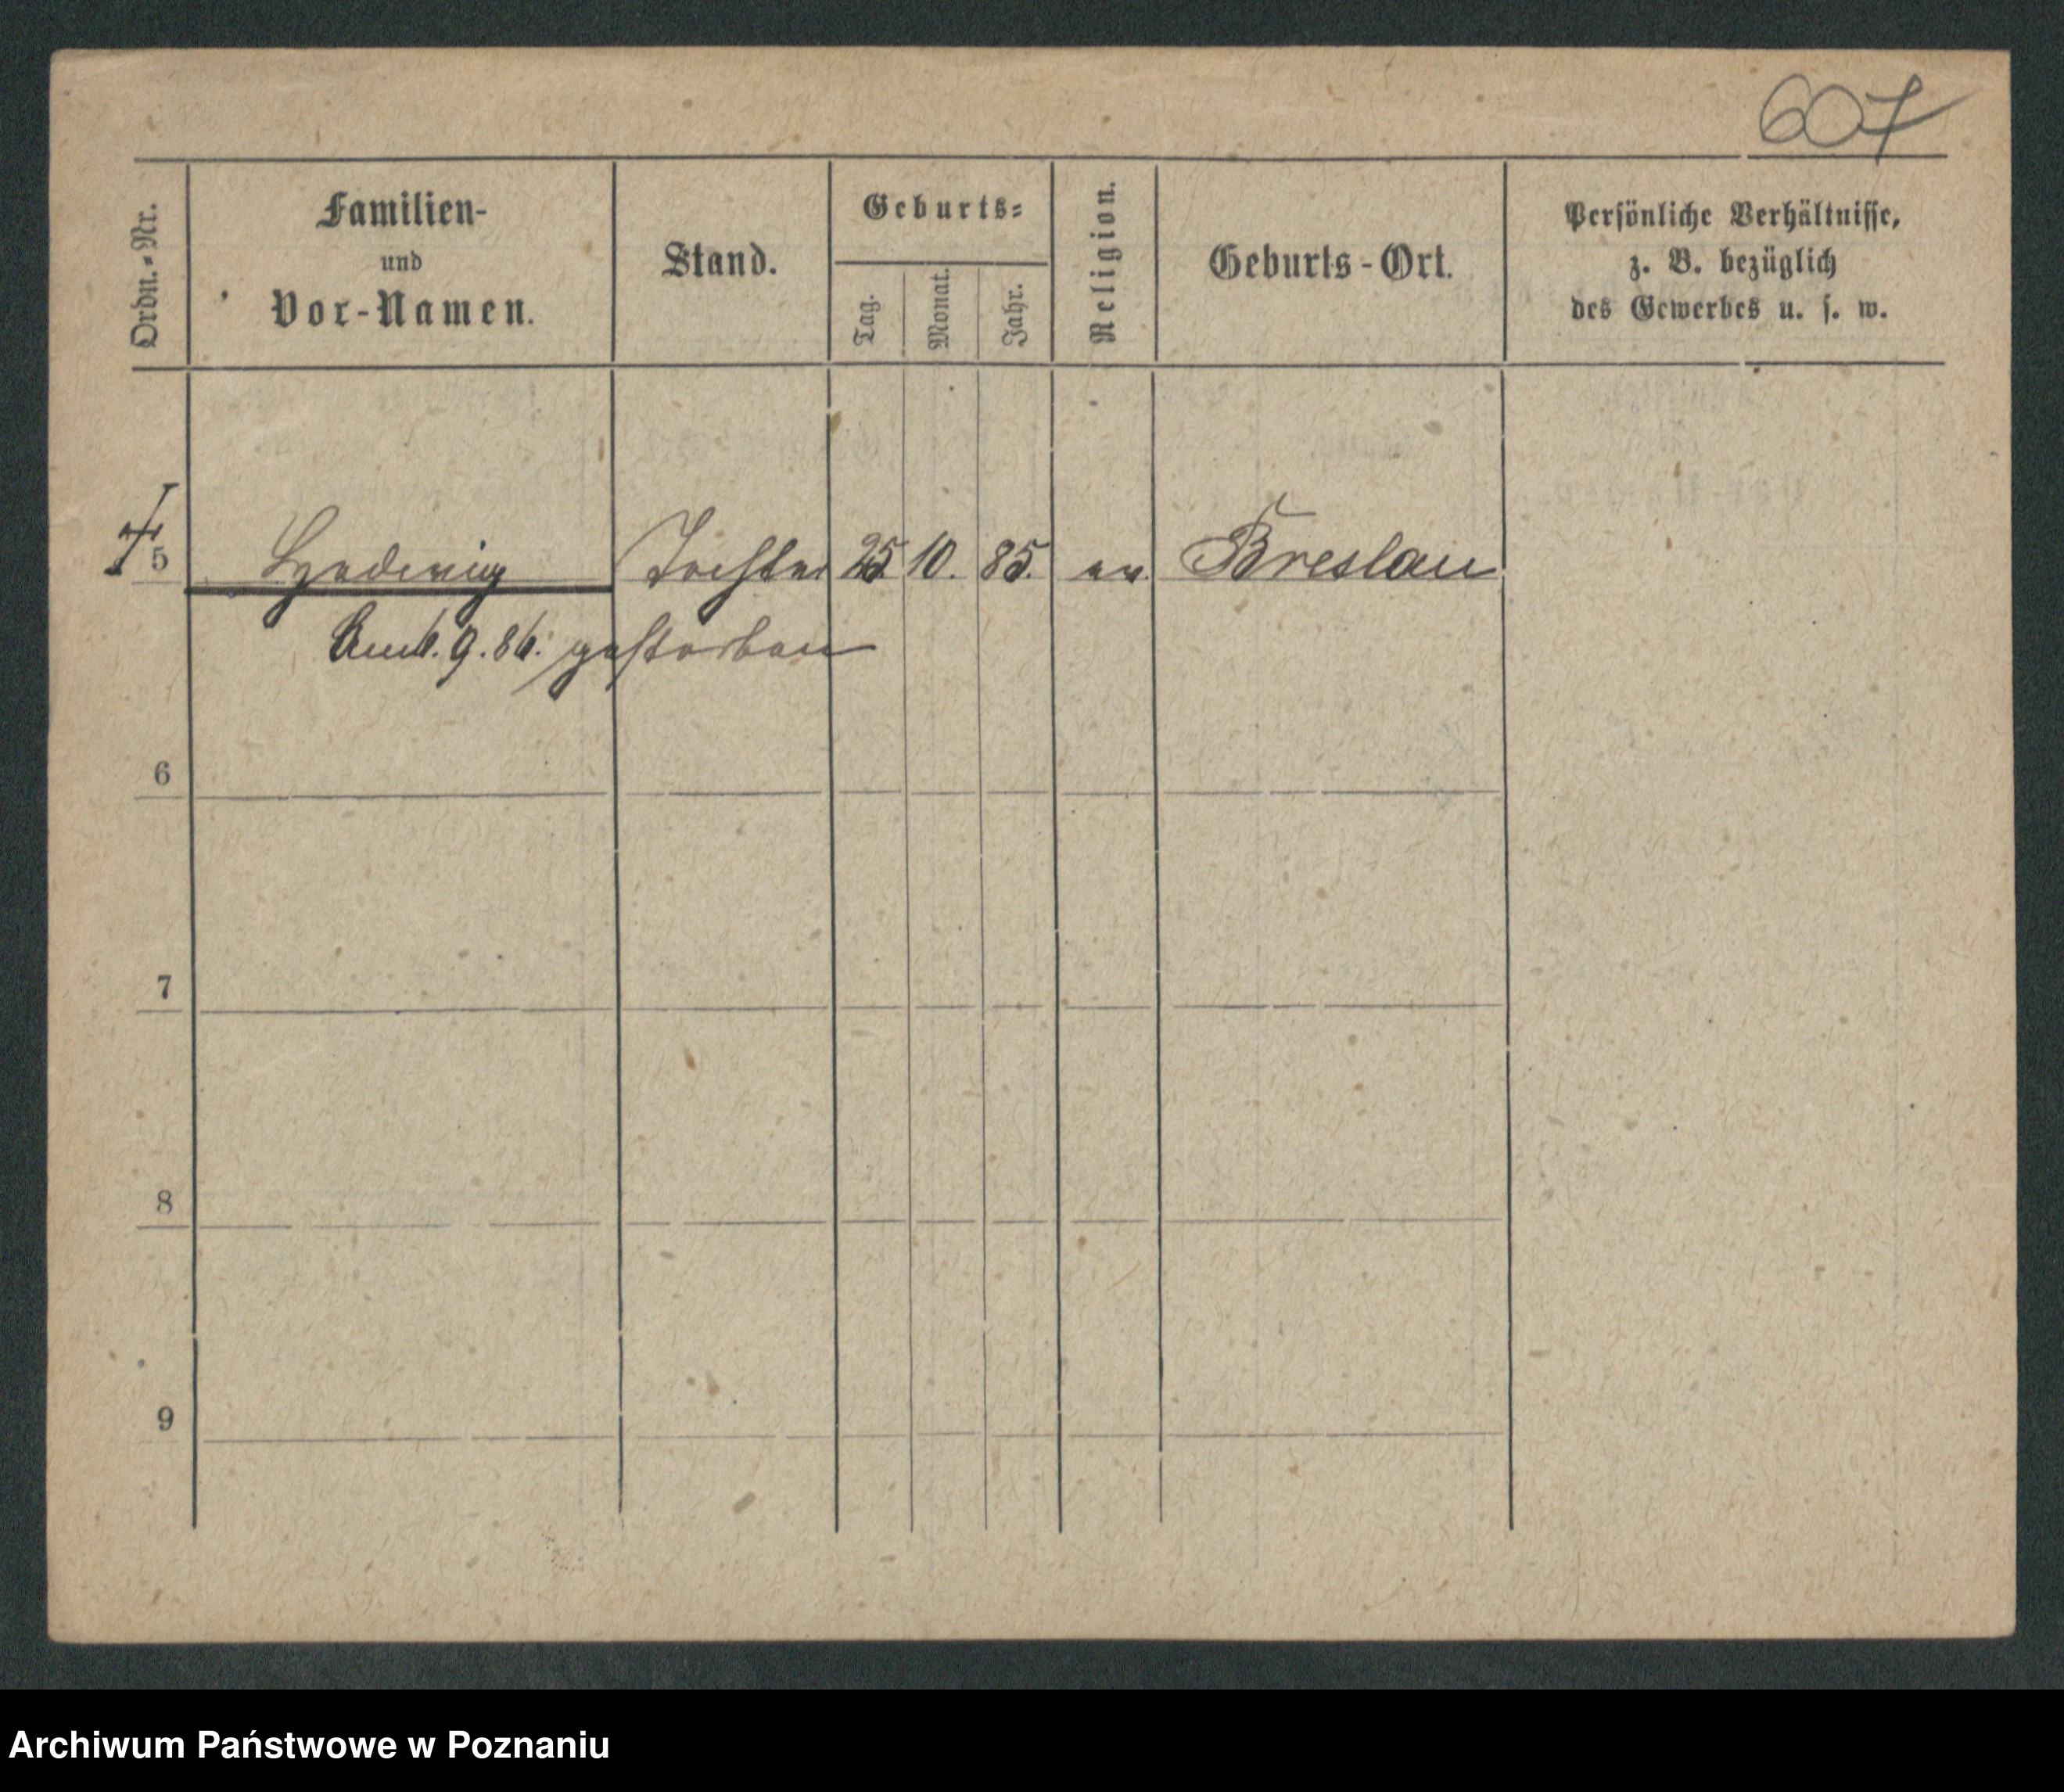 607
Ordn.-Nr.
Familien-
und
Vor-Namen.
Stand.
Geburts-
Tag.
Monat.
Jahr.
Religion.
Geburts-Ort.
Persönliche Verhältnisse,
z. B. bezüglich
des Gewerbes u. s. w.
5 Hedwig Tochter 25. 10. 85. ev. Breslau
Am 6. 9. 86. gestorben
6
7
8
9
Archiwum Państwowe w Poznaniu